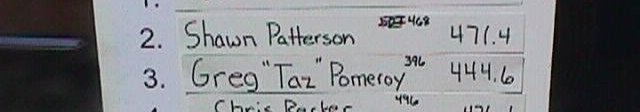 1.
2. Shawn Patterson 468 471.4
3. Greg "Taz" Pomeroy 396 444.6
Chris Parker 496